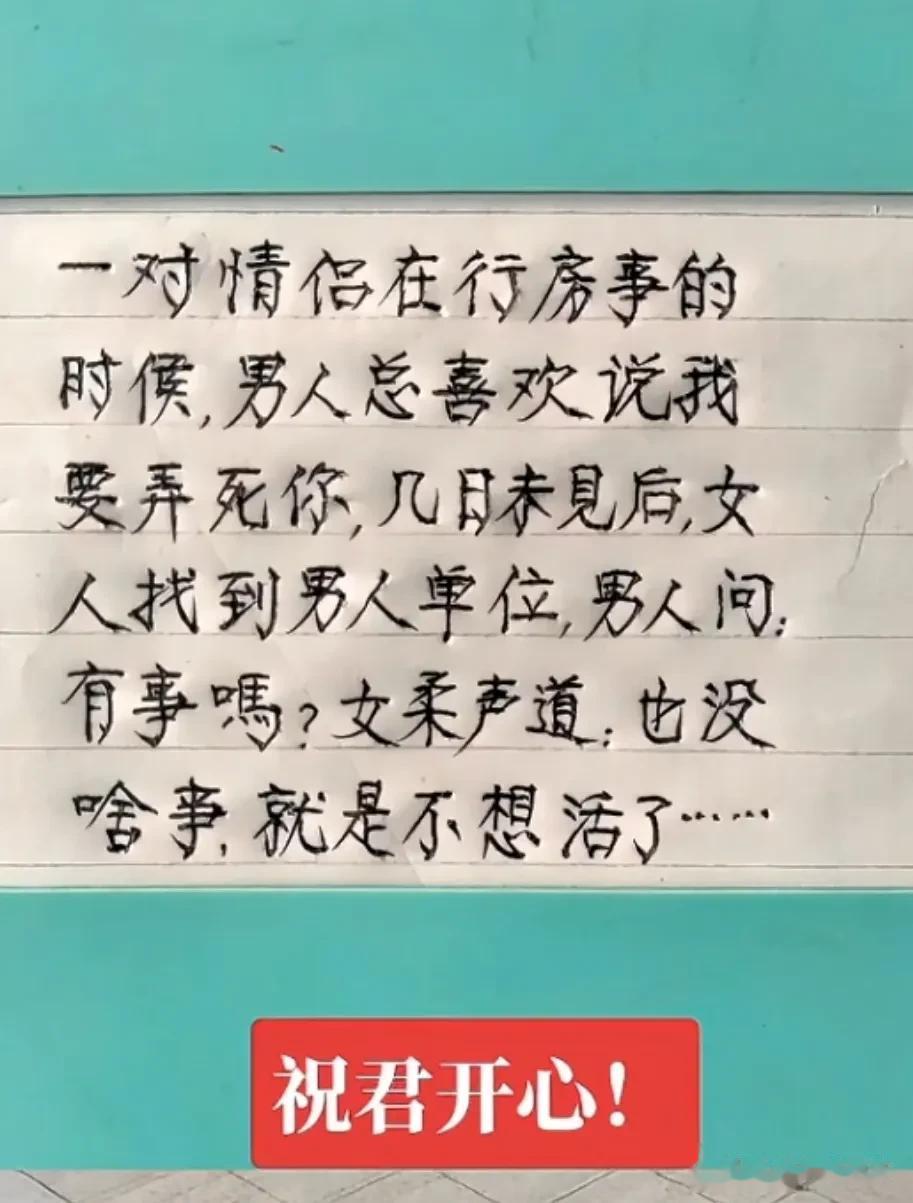 一对情侣在行房事的
时候,男人总喜欢说我
要弄死你,几日未見后,女
人找到男人单位,男人问:
有事嗎?女柔声道:也没
啥事,就是不想活了……
祝君开心!